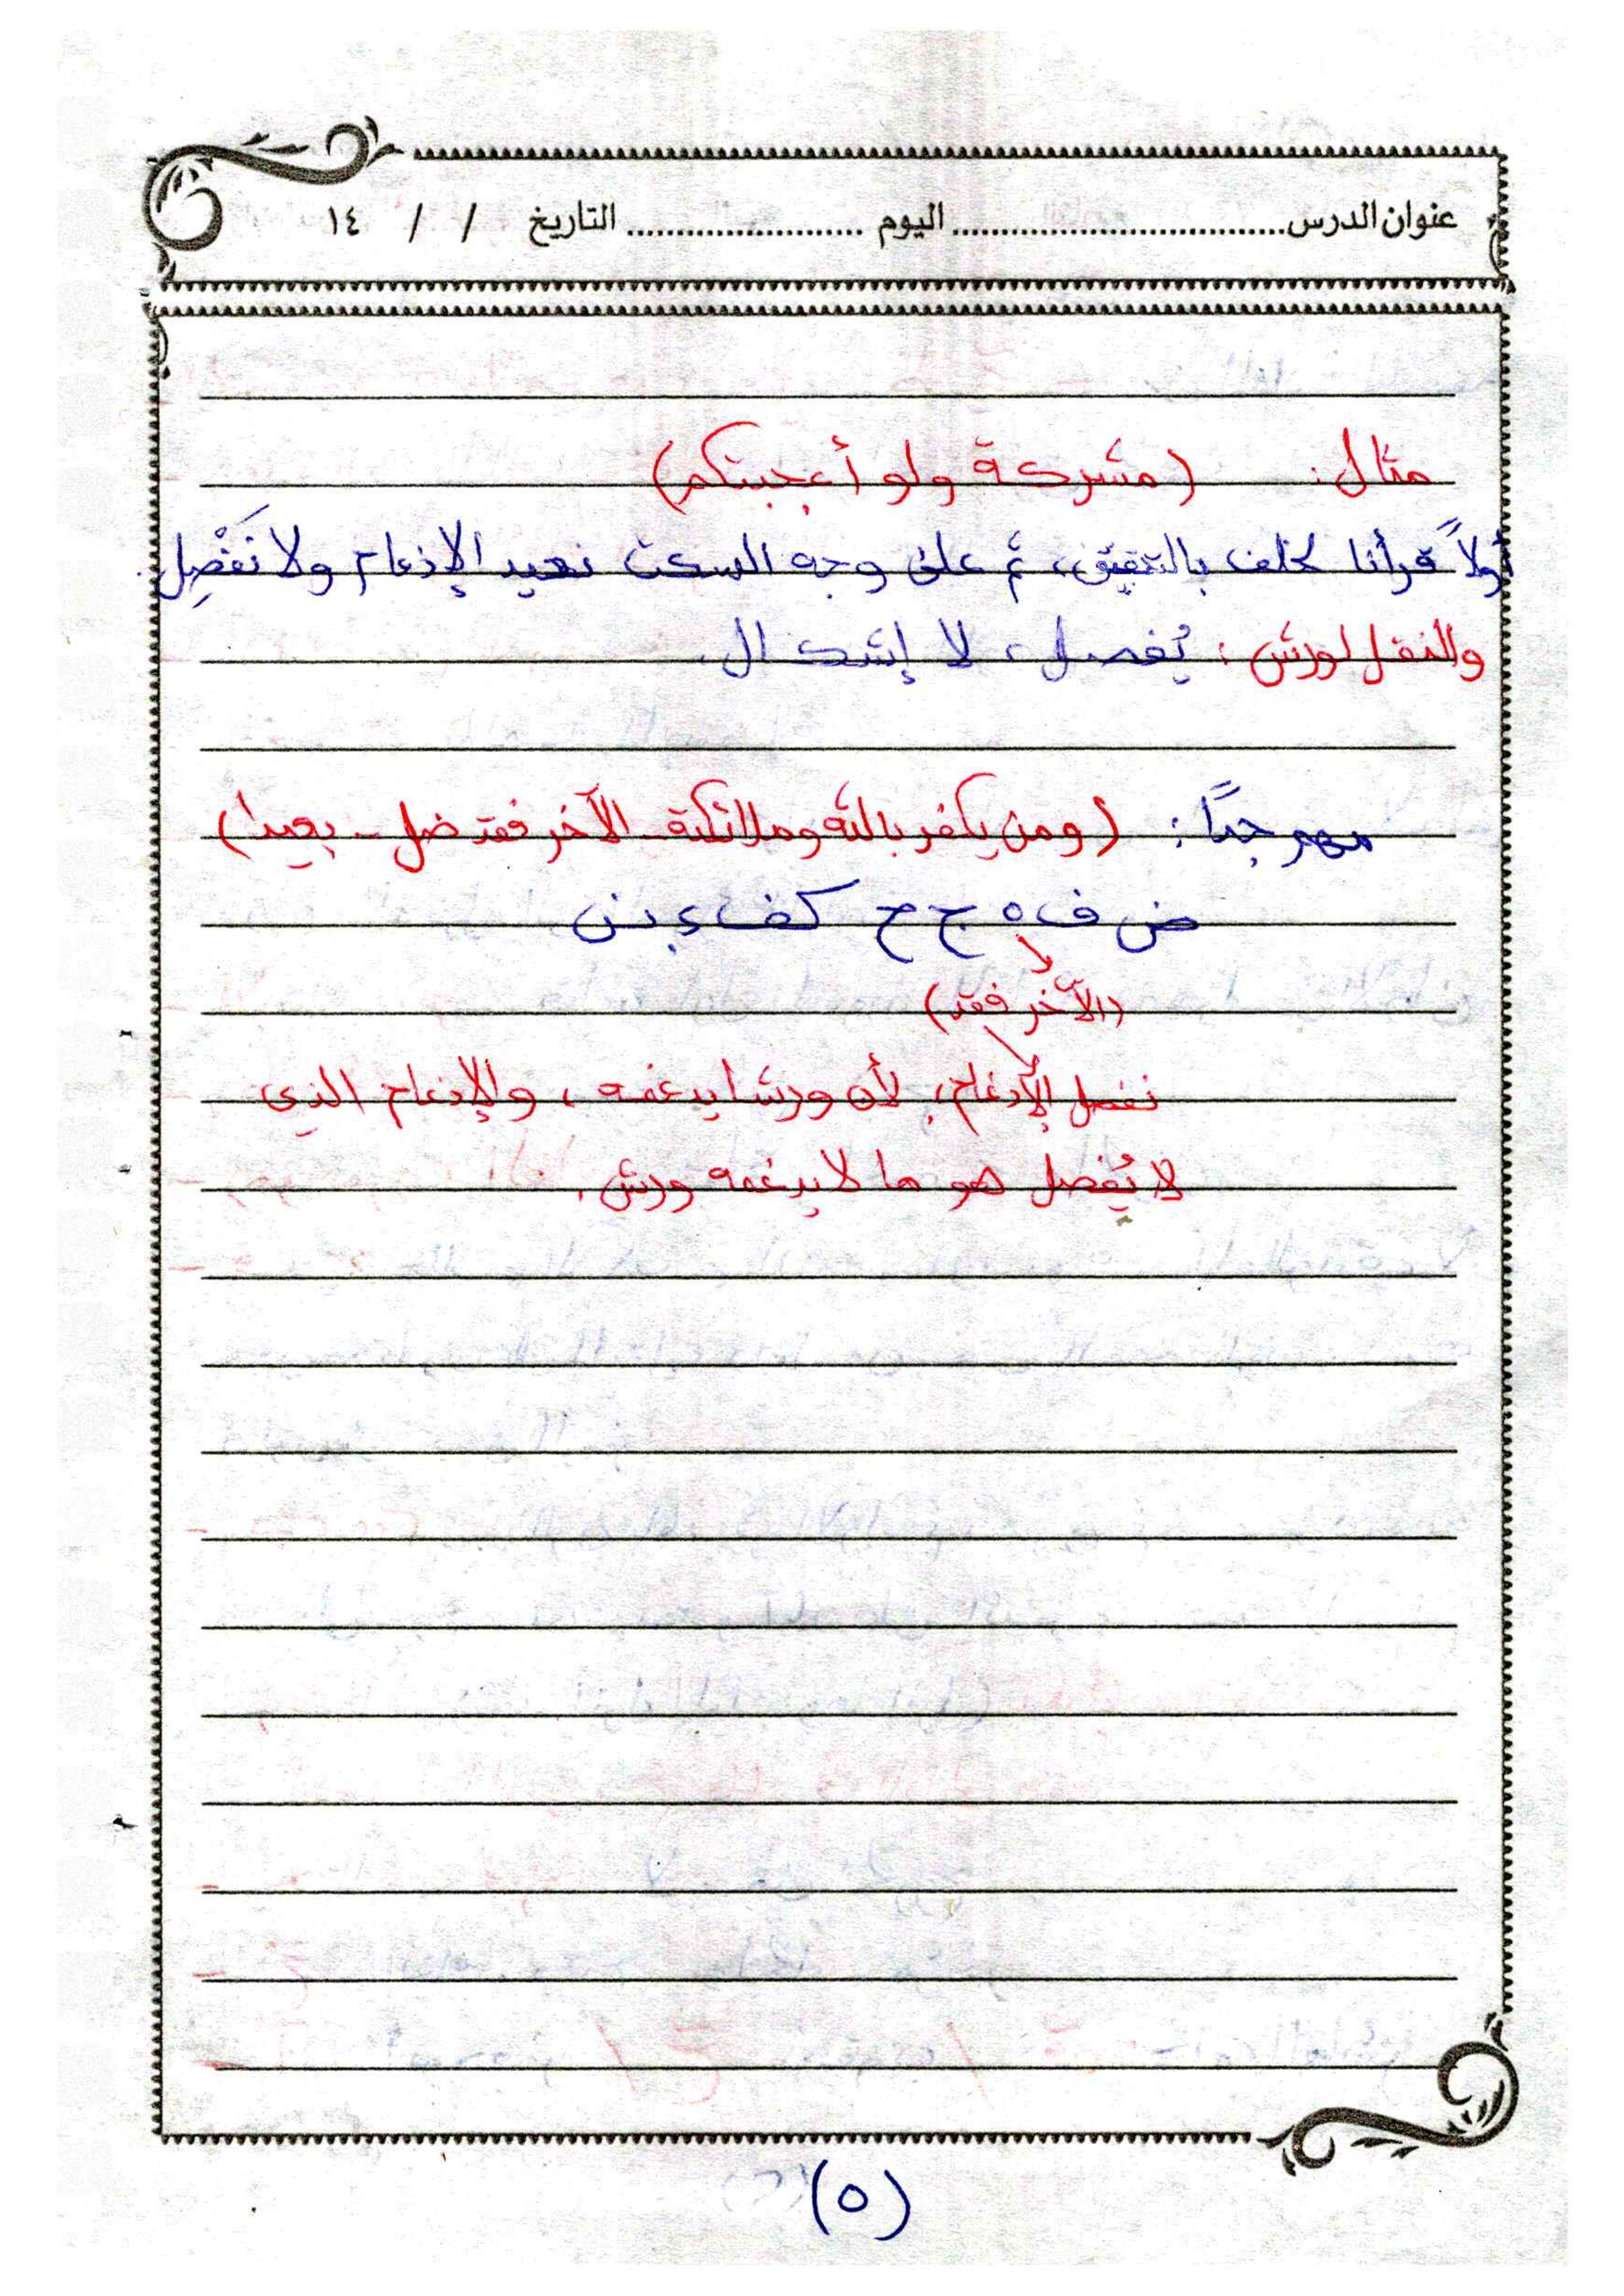 عنوان الدرس................................. اليوم ........................ التاريخ / / ١٤
مثال: (مشركة ولو أعجبتكم)
أولاً قرأنا لخلف بالتحقيق، ثم على وجه السكت نعيد الإدغام ولا نَفْصِل.
والنقل لورش: يُفصل، لا إشكال.
مهم جدًا: (ومن يكفر بالله وملائكته - الآخر فقد ضل - بعيدا)
ض ف ه ج ح كف ء بن
(الآخر فقد)
نفصل الإدغام، لأن ورشا يدغمه، والإدغام الذي
لا يُفصل هو ما لا يدغمه ورش.
(٥)